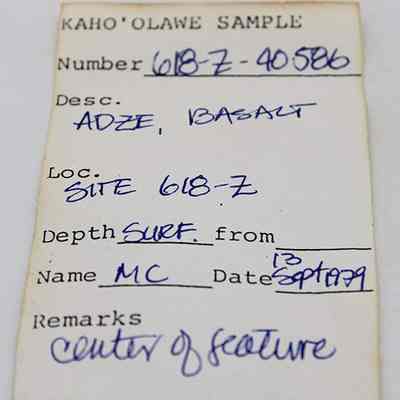 KAHO'OLAWE SAMPLE
Number 618-Z-40586
Desc.
ADZE, BASALT
Loc.
SITE 618-Z
Depth SURF. from
13
Name MC Date Sept 1979
Remarks
center of feature